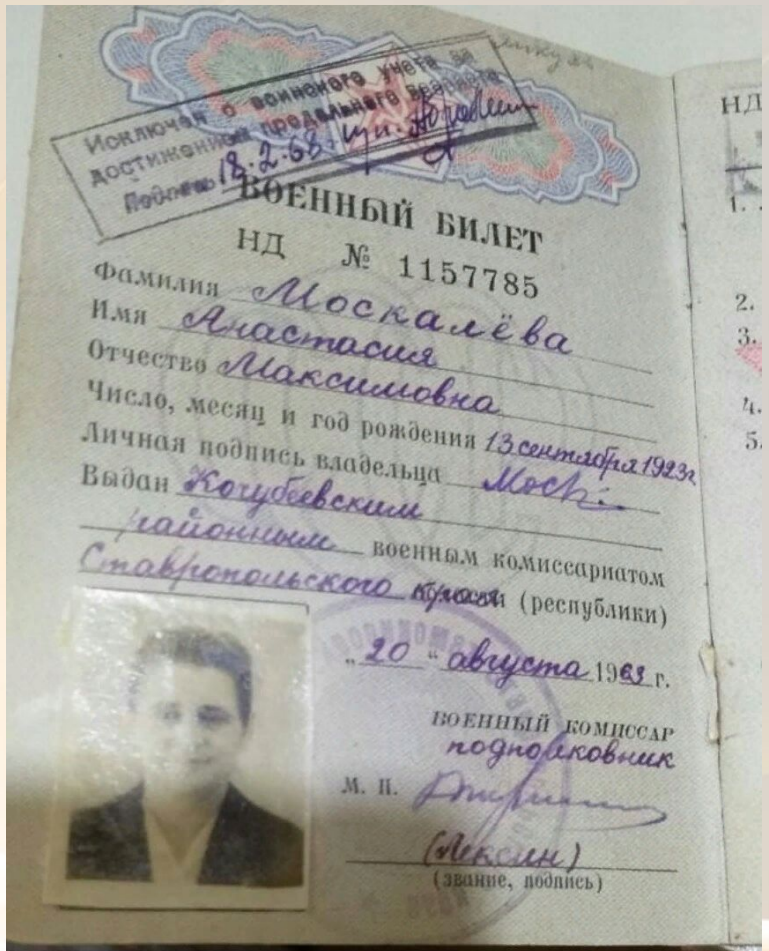 Исключен с воинского учета за
достижением предельного возраста
Подпись 18.2.68.
ВОЕННЫЙ БИЛЕТ
НД № 1157785
Фамилия Москалёва
Имя Анастасия
Отчество Максимовна
Число, месяц и год рождения 13 сентября 1923г
Личная подпись владельца Моск
Выдан Кочубеевским
районным военным комиссариатом
Ставропольского края (республики)
„20“ августа 1963 г.
ВОЕННЫЙ КОМИССАР
подполковник
М. П.
(Лексин)
(звание, подпись)
НД
1.
2.
3.
4.
5.